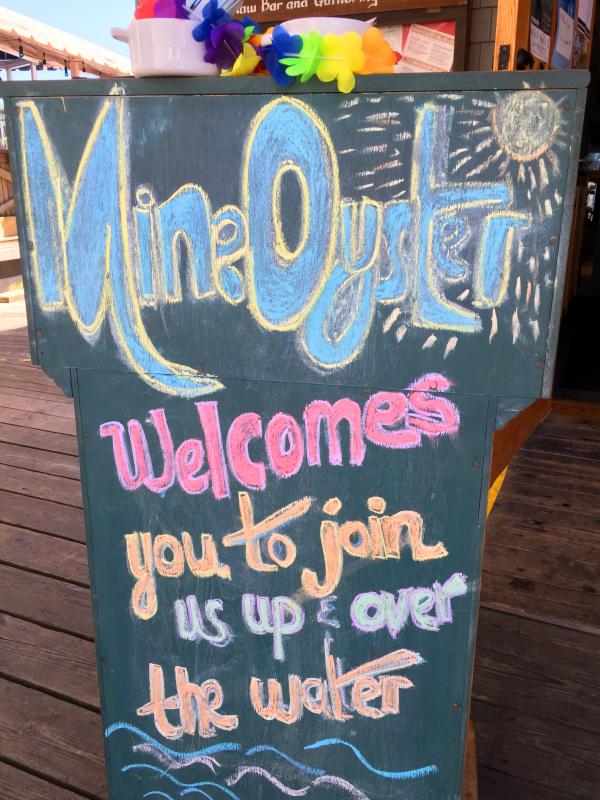 Raw Bar and Gathering
Mine Oyster
Welcomes
you to join
us up & over
the water